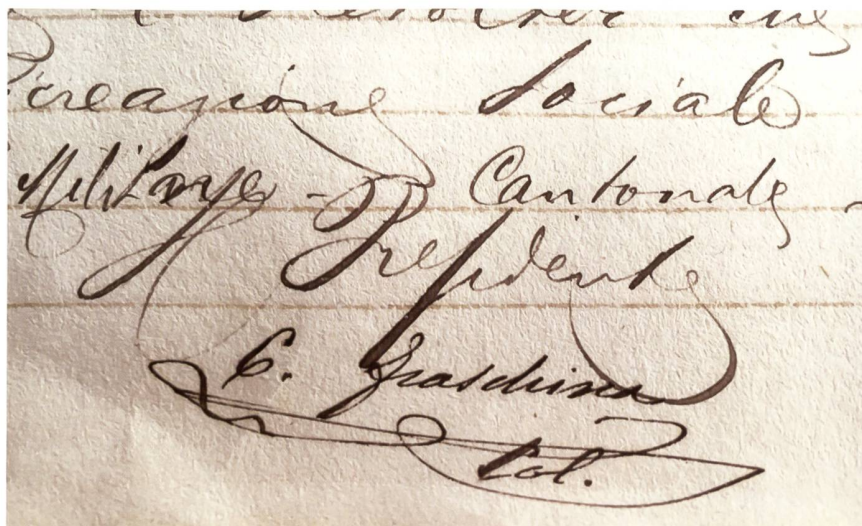 creazione Sociale
Militare - Cantonale -
Presidente
C. Fraschina
Col.